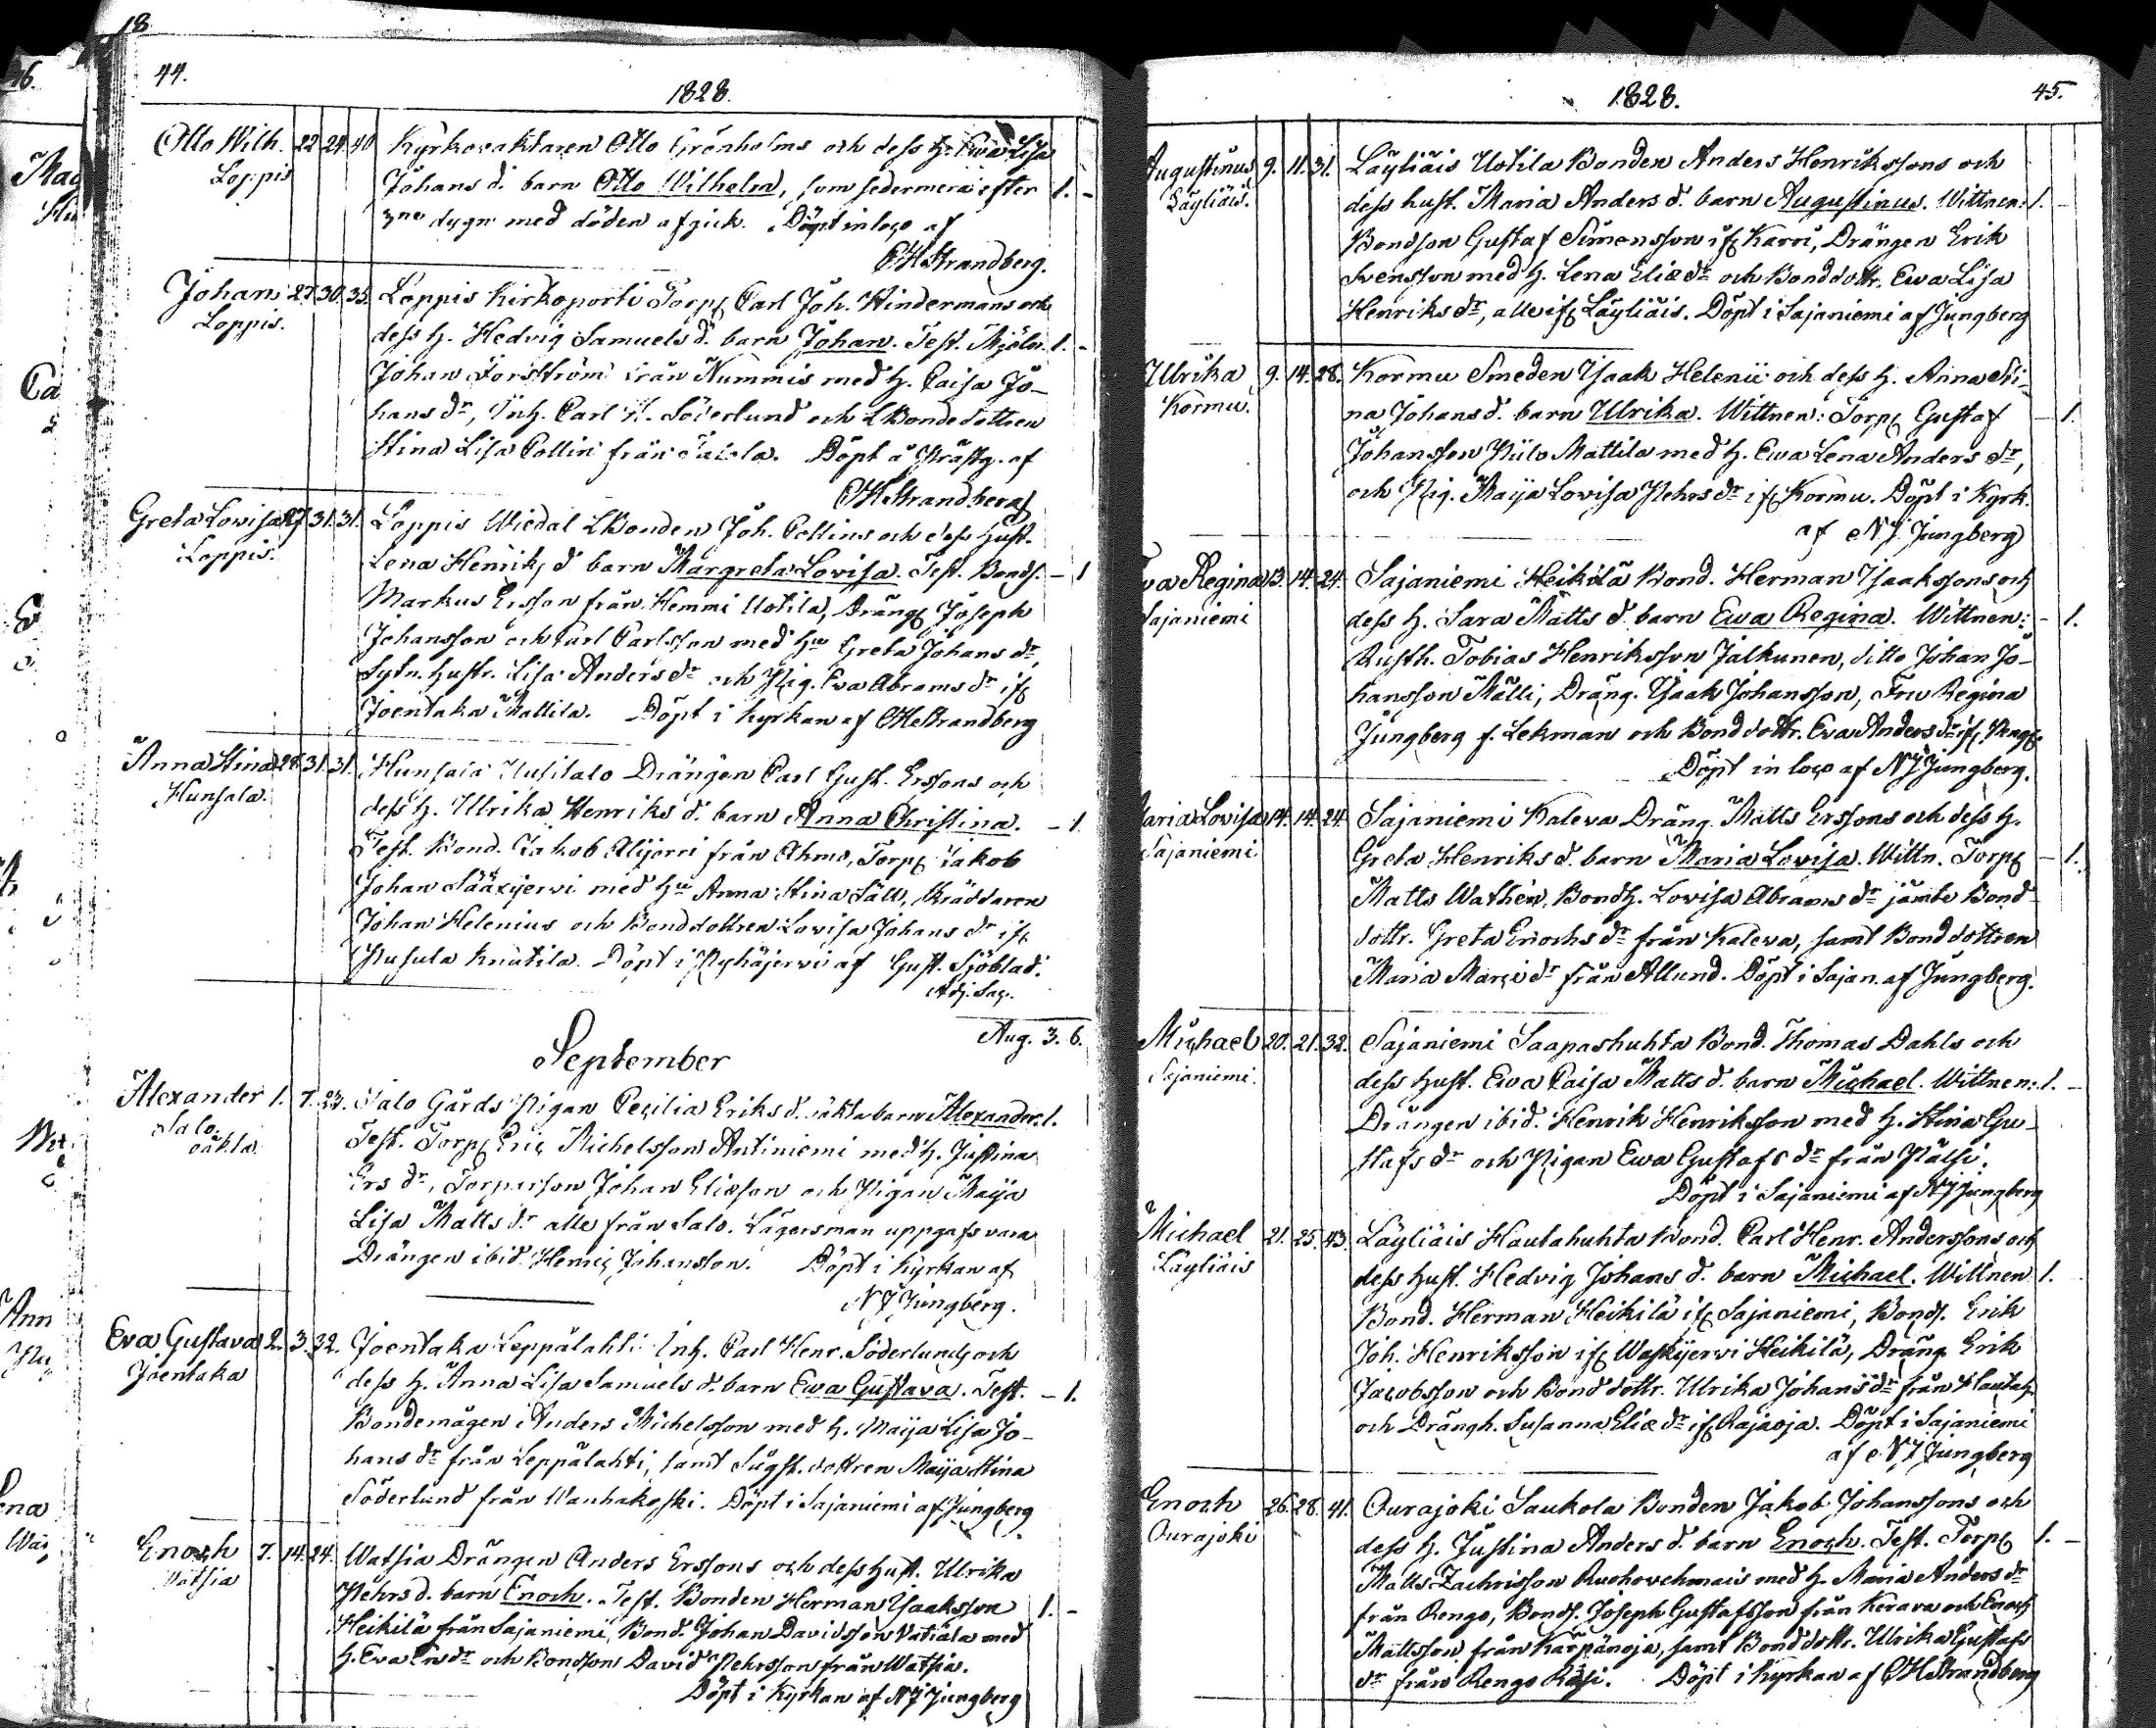 18
44.
1828.
Otto Wilh. 22 24 40 Kyrkovaktaren Otto Grönholms och dess h. Ewa Lisa
Loppis Johans d. barn Otto Wilhelm, som sedermera efter 1. -
3ne dygn med döden afgick. Döpt in loco af
CHStrandberg.
Johan 27. 30. 35. Loppis Kirkoporti Torp. Carl Joh. Hindermans och
Loppis. dess h. Hedvig Samuels d. barn Johan. Test. Mjöln. 1. -
Johan Forsström från Nummis med h. Caisa Jo-
hans dr, Inh. Carl H. Söderlund och LBondedottren
Stina Lisa Collin från Talola. Döpt å Prästg. af
CHStrandberg
Greta Lovisa 27. 31. 31. Loppis Wiedal LBonden Joh. Collins och dess hust.
Loppis. Lena Henriks d barn Margreta Lovisa. Test. Bonds. - 1
Markus Ersson från Hemmi Uotila, Dräng. Joseph
Johansson och Carl Carlsson med hu Greta Johans dr,
Sytn. hustr. Lisa Anders dr och Pig. Eva Abrams dr if.
Joentaka Mattila. Döpt i Kyrkan af CHStrandberg
Anna Stina 28. 31. 31. Hunsala Uusitalo Drängen Carl Gust. Erssons och
Hunsala. dess h. Ulrika Henriks d. barn Anna Christina. - 1.
Test. Bond. Jakob Alijorri från Ahmo, Torp. Jakob
Johan Sääxijerwi med hu Anna Stina Säll, Skräddaren
Johan Helenius och Bonddottren Lovisa Johans dr if.
Pusula Knutila. Döpt i Pyhäjerwi af Gust. Sjöblad.
Adj. Sac.
Aug. 3. 6.
September
Alexander 1. 7. 23. Salo Gårds Pigan Cecilia Eriks d. oäkta barn Alexander. 1.
Salo. Test. Torp. Eric Michelsson Antiniemi med h. Justina
oäkta. Ers dr, Torparson Johan Eliæson och Pigan Maija
Lisa Matts dr alle från Salo. Lägersman uppgafs vara
Drängen ibid. Henric Johansson. Döpt i Kyrkan af
NJ Jungberg.
Eva Gustava 2. 3. 32. Joentaka Leppälahti Inh. Carl Henr. Söderlunds och
Joentaka dess h. Anna Lisa Samuels d. barn Ewa Gustava. Test. - 1.
Bondemågen Anders Michelsson med h. Maija Lisa Jo-
hans dr från Leppälahti, samt Sågst. dottren Maija Stina
Söderlund från Wanhakoski. Döpt i Sajaniemi af Jungberg
Enoch 7. 14. 24. Watsia Drängen Anders Erssons och dess hust. Ulrika
Watsia Pehrs d. barn Enoch. Test. Bonden Herman Isaaksson 1. -
Heikilä från Sajaniemi, Bond. Johan Davidsson Vatiala med
h. Eva Ers dr och Bondson David Pehrsson från Watsia.
Döpt i Kyrkan af NJ Jungberg
1828.
45.
Augustinus 9. 11. 31. Läyliäis Uotila Bonden Anders Henrikssons och
Läyliäis. dess hust. Maria Anders d. barn Augustinus. Wittnen: 1. -
Bondson Gustaf Simonsson if. Karri, Drängen Erik
Svensson med h. Lena Eliæ dr och Bonddottr. Ewa Lisa
Henriks dr, alle if. Läyliäis. Döpt i Sajaniemi af Jungberg
Ulrika 9. 14. 28. Kormu Smeden Isaak Helenii och dess h. Anna Sti-
Kormu. na Johans d. barn Ulrika. Wittnen: Torp. Gustaf - 1.
Johansson Niilo Mattila med h. Ewa Lena Anders dr,
och Pig. Maija Lovisa Pehrs dr if. Kormu. Döpt i Kyrk.
af NJ Jungberg
Eva Regina 13. 14. 24. Sajaniemi Heikilä Bond. Herman Isaakssons och
Sajaniemi dess h. Sara Matts d. barn Ewa Regina. Wittnen: - 1.
Rusth. Tobias Henriksson Jalkunen, ditto Johan Jo-
hansson Mälli, Dräng. Isaak Johansson, Fru Regina
Jungberg f. Lekman och Bonddottr. Eva Anders dr if.
Döpt in loco af NJ Jungberg.
Maria Lovisa 14. 14. 24. Sajaniemi Kaleva Dräng. Matts Erssons och dess h.
Sajaniemi Greta Henriks d. barn Maria Lovisa. Wittn. Torp. - 1.
Matts Wathén, Bondh. Lovisa Abrams dr jämte Bond-
dottr. Greta Enochs dr från Kaleva, samt Bonddottren
Maria Marci dr från Allund. Döpt i Sajan. af Jungberg.
Michael 20. 21. 32. Sajaniemi Saapashuhta Bond. Thomas Dahls och
Sajaniemi. dess hust. Ewa Caisa Matts d. barn Michael. Wittnen: 1. -
Drängen ibid. Henrik Henriksson med h. Stina Gu-
stafs dr och Pigan Ewa Gustafs dr från Pälsi.
Döpt i Sajaniemi af NJ Jungberg
Michael 21. 25. 43. Läyliäis Hautahuhta Bond. Carl Henr. Anderssons och
Läyliäis dess hust. Hedvig Johans d. barn Michael. Wittnen 1.
Bond. Herman Heikilä if. Sajaniemi, Bonds. Erik
Joh. Henriksson if. Waskijerwi Heikilä, Dräng Erik
Jacobsson och Bonddottr. Ulrika Johans dr från Hautah.
och Drängh. Susanna Eliæ dr if. Rajaoja. Döpt i Sajaniemi
af NJ Jungberg
Enoch 26. 28. 41. Ourajoki Saukola Bonden Jakob Johanssons och
Ourajoki dess h. Justina Anders d. barn Enoch. Test. Torp. 1. -
Matts Zachrisson med h. Maria Anders dr
från Rengo, Bonds. Joseph Gustafsson från Kerava och Enoch
Mattsson från Kärpänoja, samt Bonddottr. Ulrika Gustafs
dr från Rengo. Döpt i Kyrkan af CHStrandberg